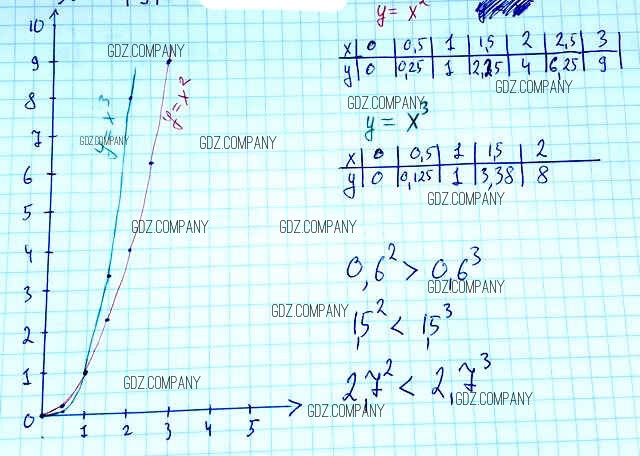 y = x²
x | 0 | 0,5 | 1 | 1,5 | 2 | 2,5 | 3
y | 0 | 0,25 | 1 | 2,25 | 4 | 6,25 | 9
y = x³
x | 0 | 0,5 | 1 | 1,5 | 2
y | 0 | 0,125 | 1 | 3,38 | 8
0,6² > 0,6³
1,5² < 1,5³
2,7² < 2,7³
10
9
8
7
6
5
4
3
2
1
0
1 2 3 4 5
y = x³
y = x²
GDZ.COMPANY
GDZ.COMPANY
GDZ.COMPANY
GDZ.COMPANY
GDZ.COMPANY
GDZ.COMPANY
GDZ.COMPANY
GDZ.COMPANY
GDZ.COMPANY
GDZ.COMPANY
GDZ.COMPANY
GDZ.COMPANY
GDZ.COMPANY
GDZ.COMPANY